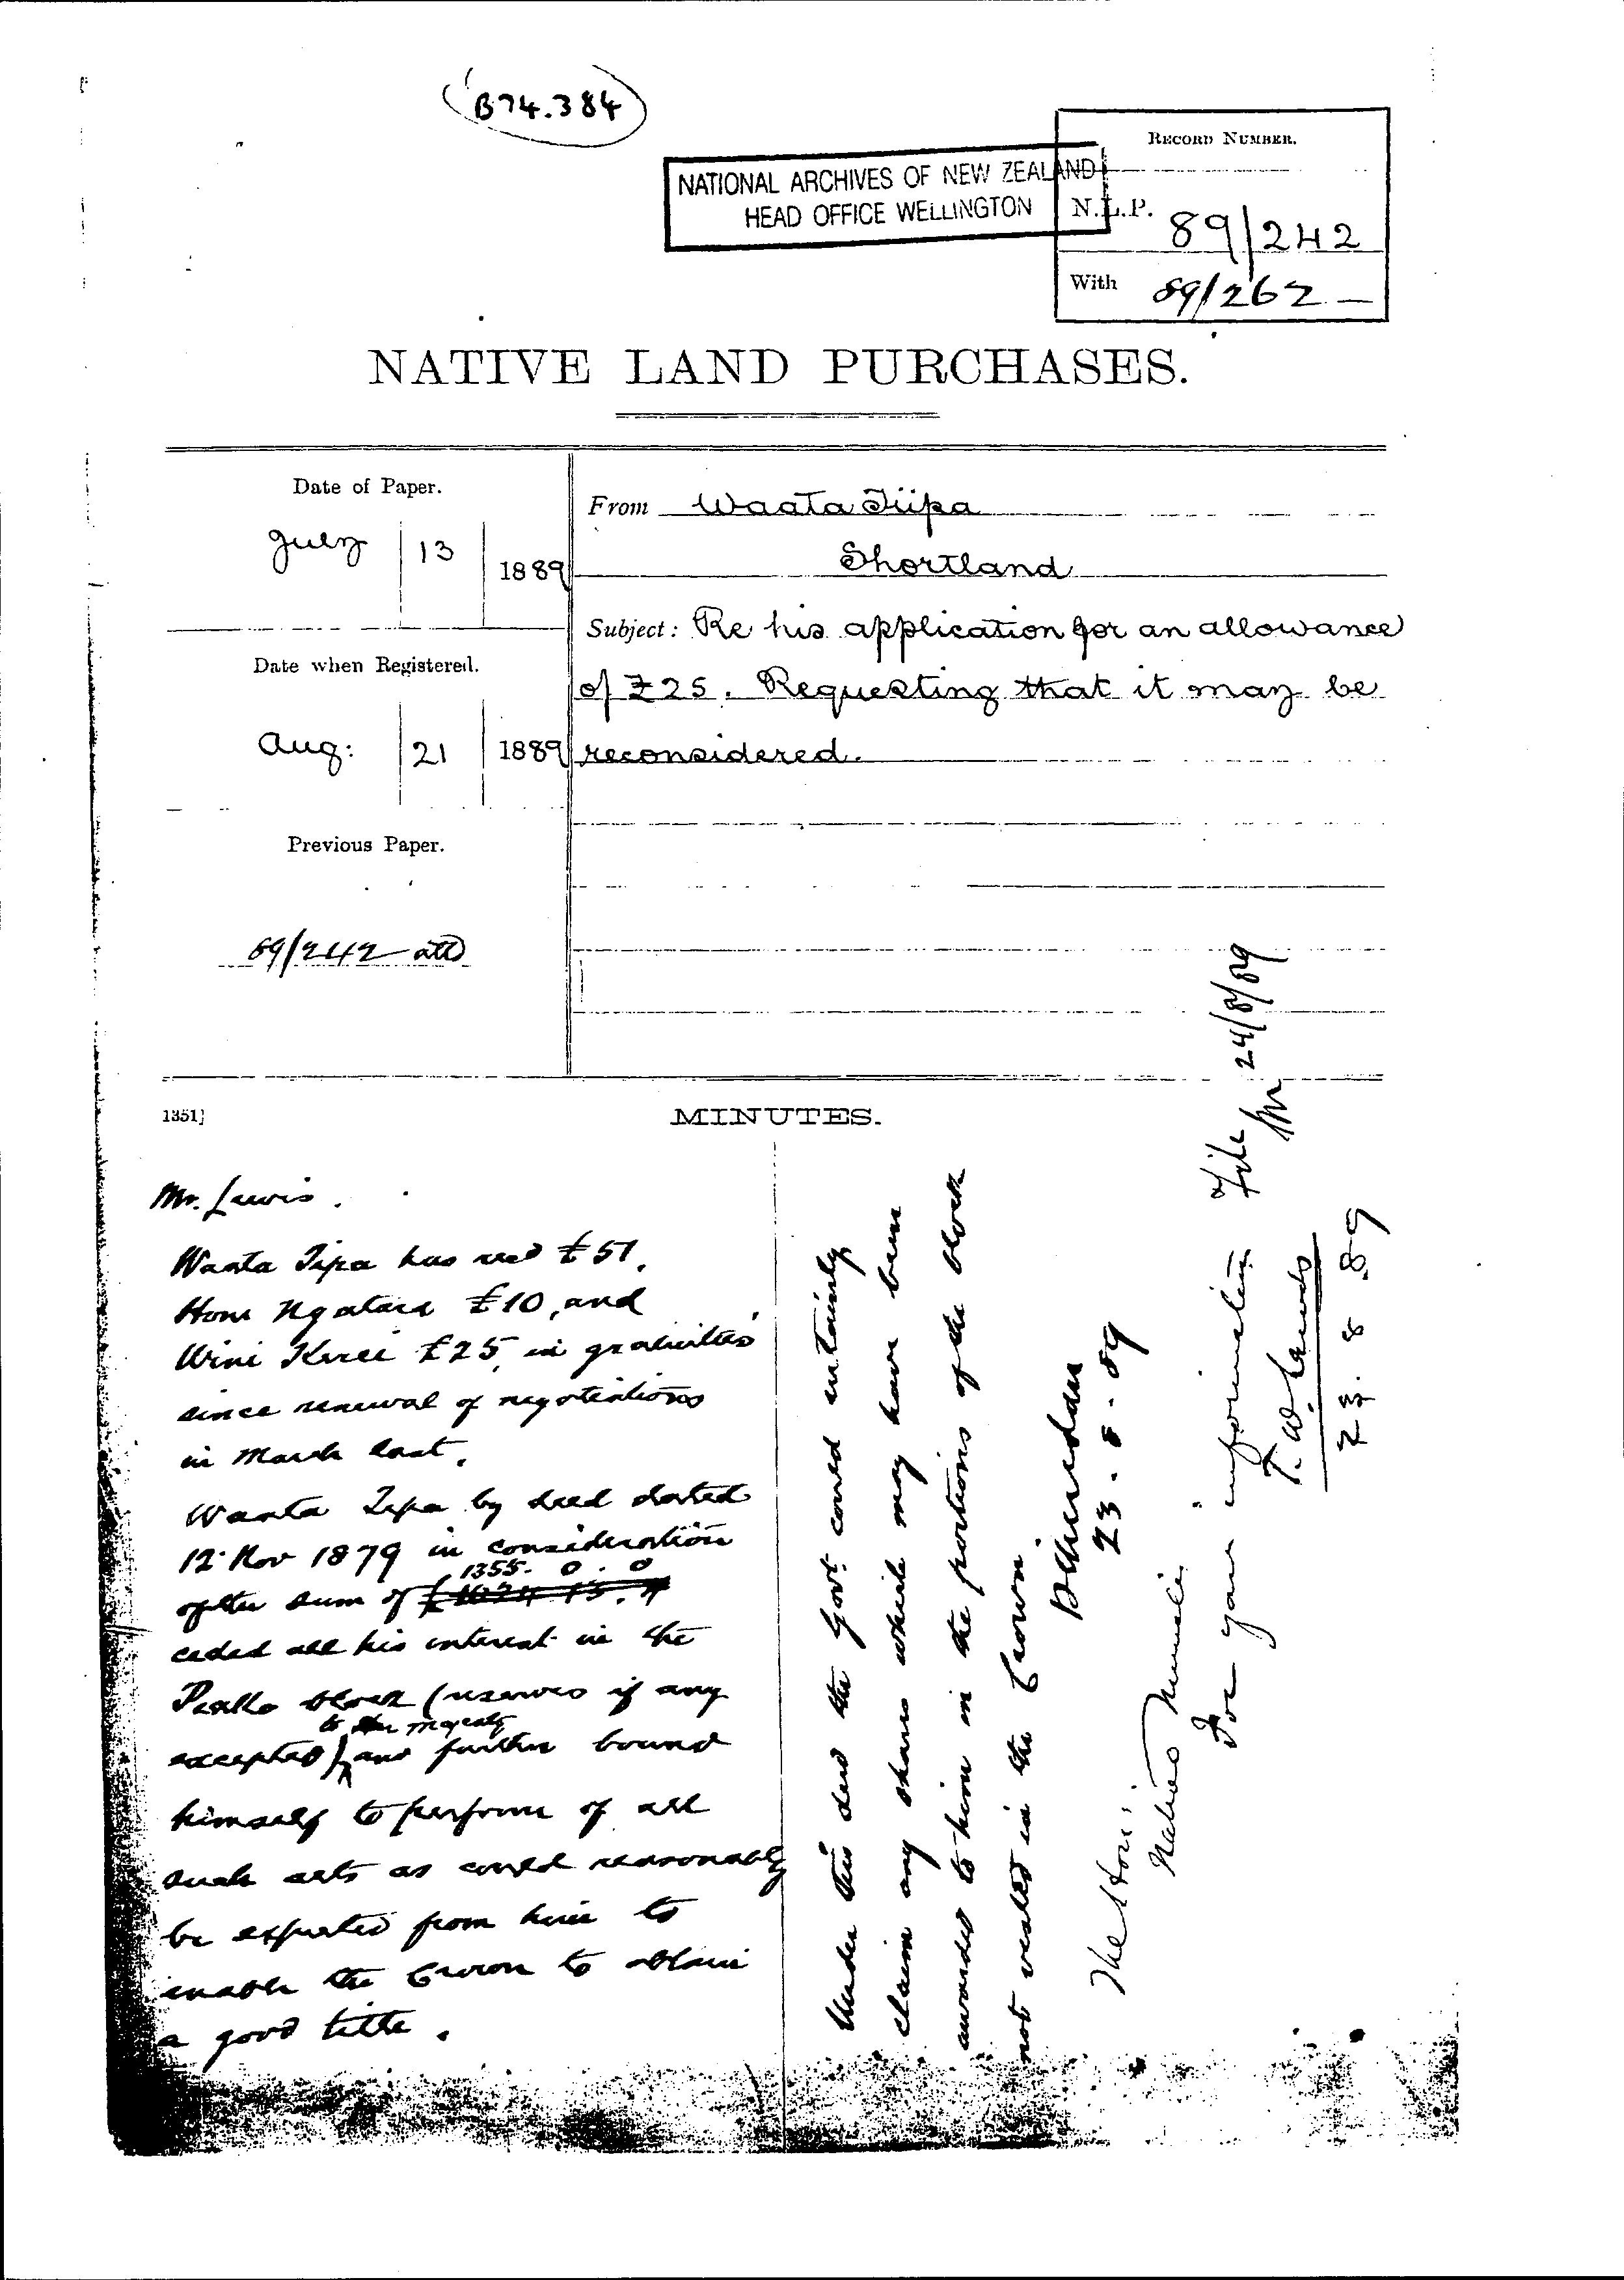 B74.384
NATIONAL ARCHIVES OF NEW ZEALAND
HEAD OFFICE WELLINGTON
RECORD NUMBER.
N.L.P. 89/242
With 89/262
NATIVE LAND PURCHASES.
Date of Paper.
July 13 1889
Date when Registered.
Aug: 21 1889
Previous Paper.
89/242 att
From Waata Tiipa
Shortland
Subject: Re his application for an allowance
of £25. Requesting that it may be
reconsidered.
1351]
MINUTES.
Mr. Lewis.
Waata Tipa has recd £51,
Honi £10, and
£25, in gratuities
since renewal of negotiations
in March last.
Waata Tipa by deed dated
12 Nov 1879 in consideration
of the sum of £ 1355. 0. 0
ceded all his interest in the
block (reserves if any
excepted) to Her Majesty and further bound
himself to perform of all
such acts as could reasonably
be expected from him to
enable the Crown to obtain
a good title.
Under this deed the Govt. could certainly
claim any shares which may have been
awarded to him in the portions of the block
not vested in the Crown.
23.8.89
The Hon:
Native Minister
For your information
T. W. Lewis
23.8.89
File
24/8/89